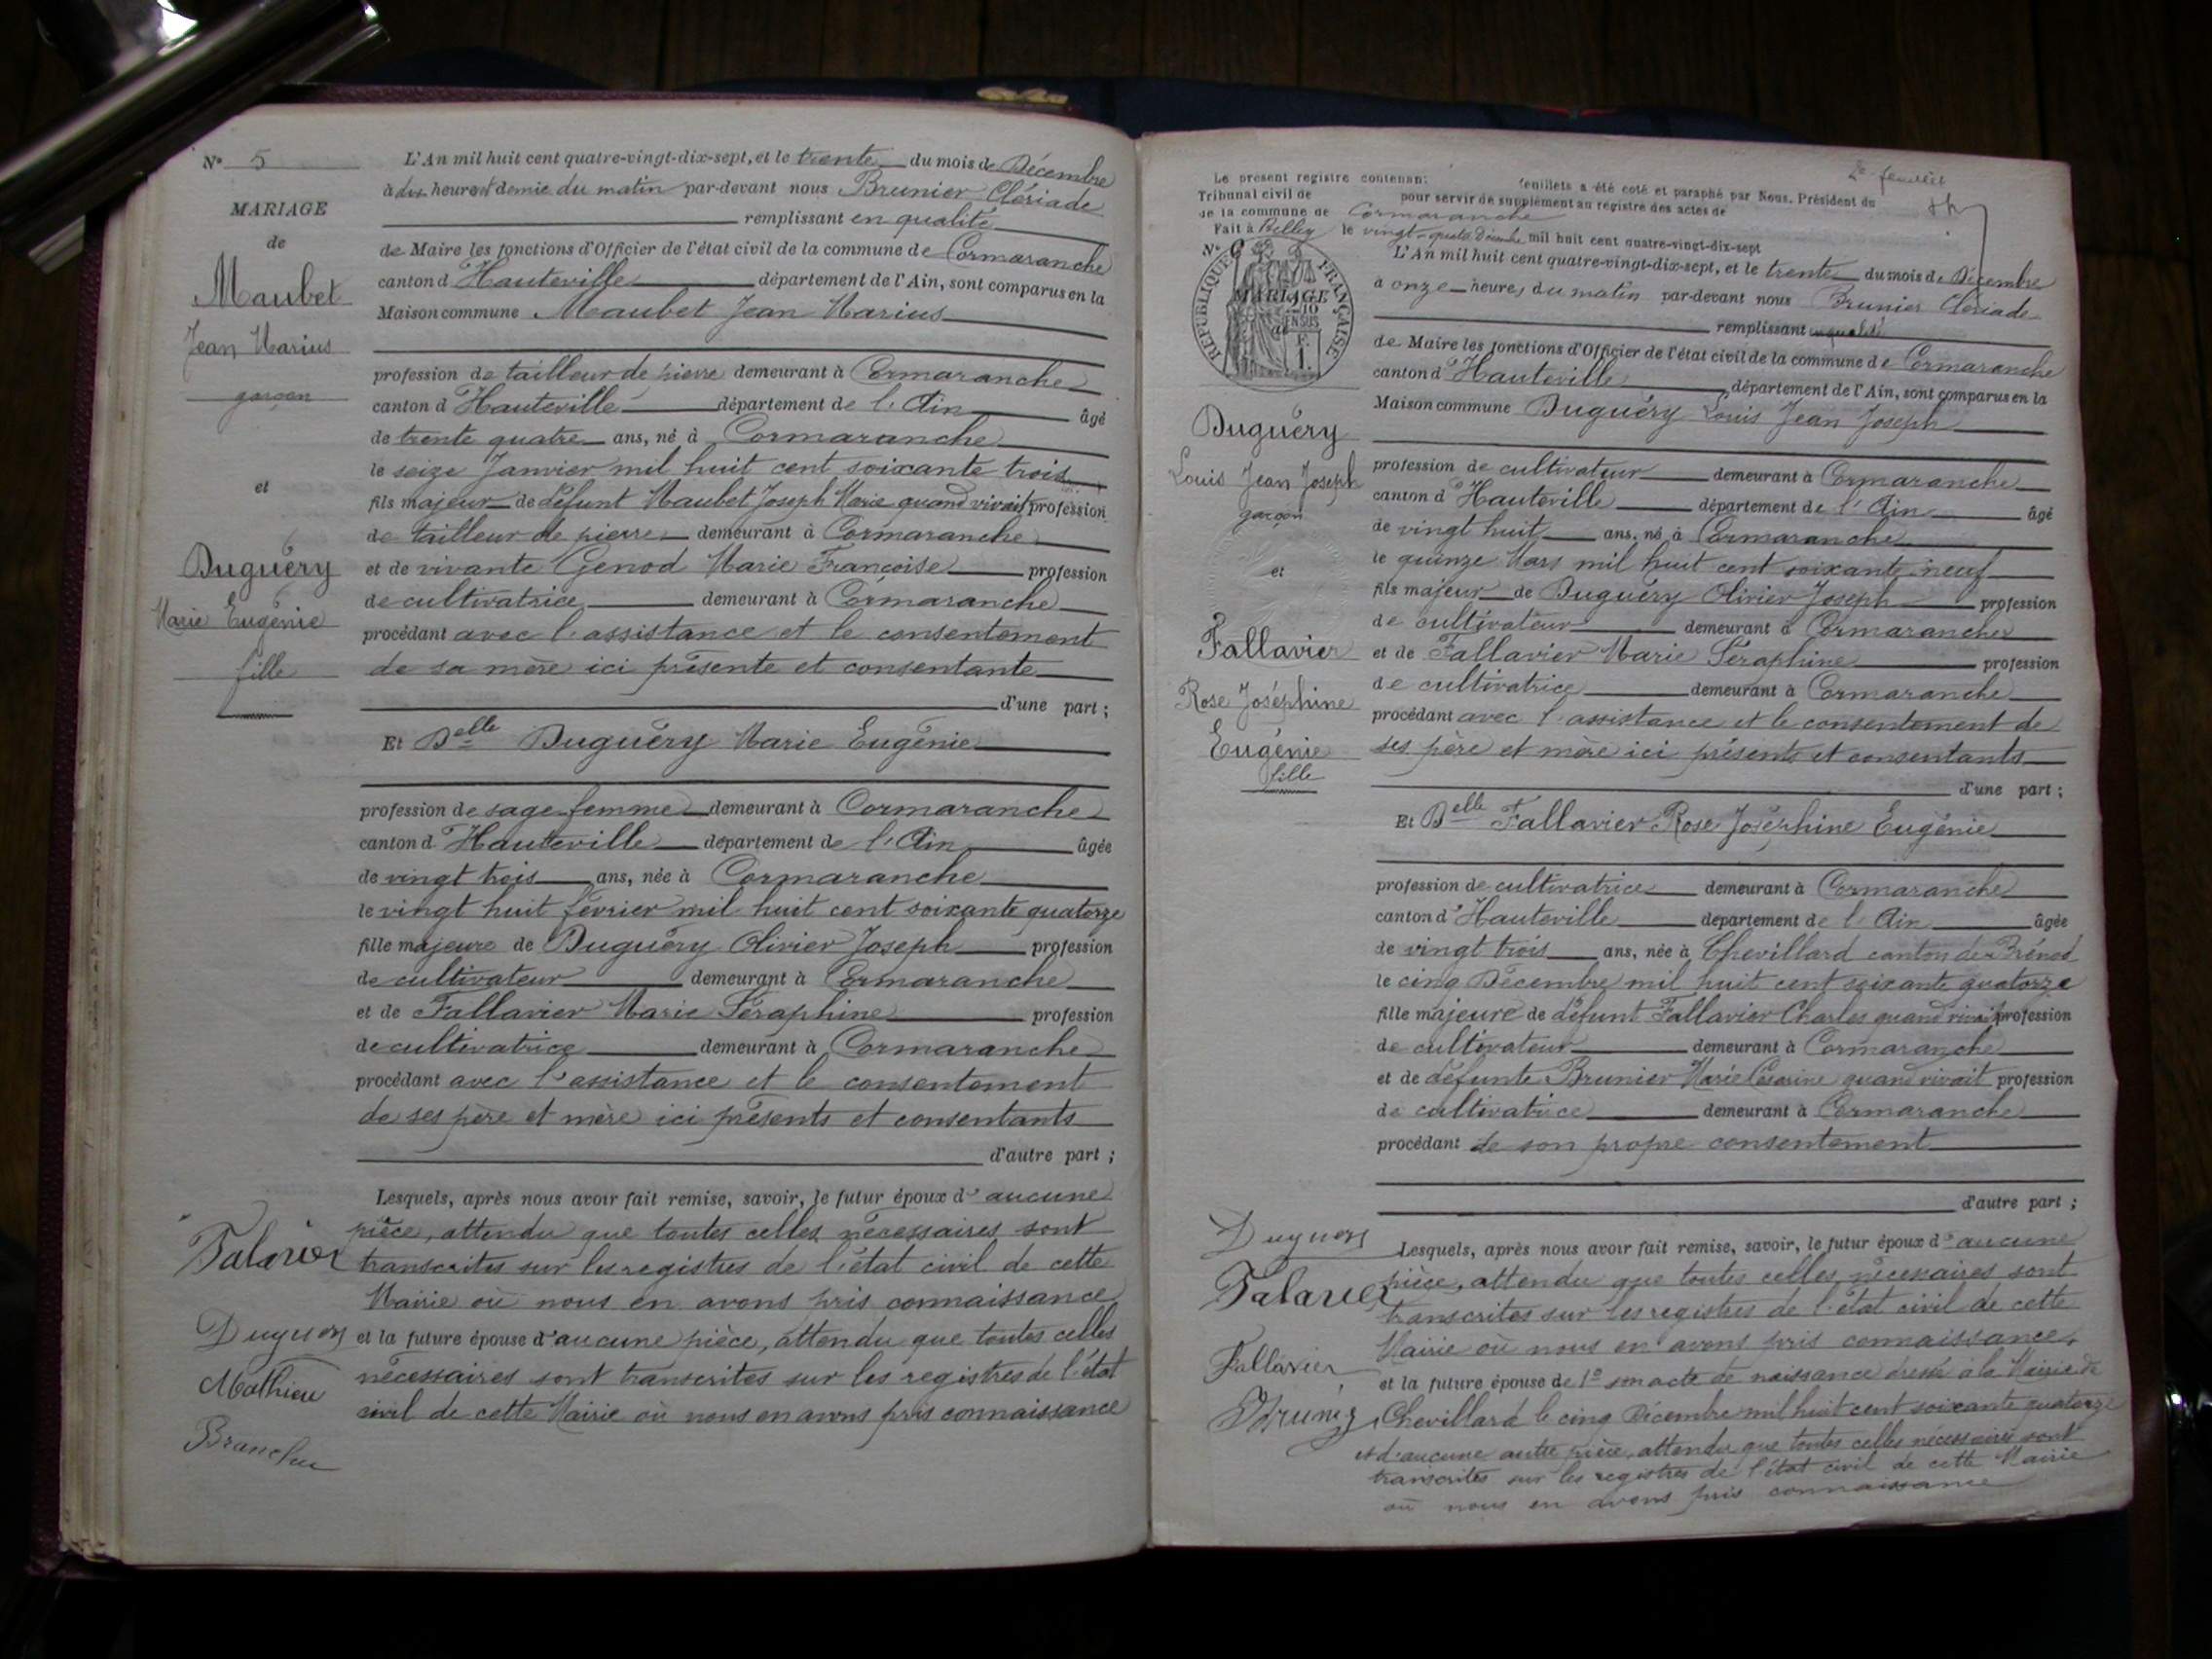 N° 5
MARIAGE
de
Maubet
Jean Marius
garçon
et
Duguéry
Marie Eugénie
fille
L'An mil huit cent quatre-vingt-dix-sept, et le trente du mois de Décembre
à dix heures et demie du matin par-devant nous Brunier Clériade
remplissant en qualité
de Maire les fonctions d'Officier de l'état civil de la commune de Cormaranche
canton d'Hauteville département de l'Ain, sont comparus en la
Maison commune Maubet Jean Marius
profession de tailleur de pierre demeurant à Cormaranche
canton d'Hauteville département de l'Ain âgé
de trente quatre ans, né à Cormaranche
le seize Janvier mil huit cent soixante trois
fils majeur de défunt Maubet Joseph Marie quand vivait profession
de tailleur de pierre demeurant à Cormaranche
et de vivante Genod Marie Françoise profession
de cultivatrice demeurant à Cormaranche
procédant avec l'assistance et le consentement
de sa mère ici présente et consentante
d'une part ;
Et Delle Duguéry Marie Eugénie
profession de sage femme demeurant à Cormaranche
canton d'Hauteville département de l'Ain âgée
de vingt trois ans, née à Cormaranche
le vingt huit février mil huit cent soixante quatorze
fille majeure de Duguéry Olivier Joseph profession
de cultivateur demeurant à Cormaranche
et de Fallavier Marie Séraphine profession
de cultivatrice demeurant à Cormaranche
procédant avec l'assistance et le consentement
de ses père et mère ici présents et consentants
d'autre part ;
Lesquels, après nous avoir fait remise, savoir, le futur époux d'aucune
pièce, attendu que toutes celles nécessaires sont
transcrites sur les registres de l'état civil de cette
Mairie où nous en avons pris connaissance
et la future épouse d'aucune pièce, attendu que toutes celles
nécessaires sont transcrites sur les registres de l'état
civil de cette Mairie où nous en avons pris connaissance
Duguery
Mathieu
2e feuillet
Le présent registre contenant feuillets a été coté et paraphé par Nous, Président du
Tribunal civil de pour servir de supplément au registre des actes de
de la commune de Cormaranche
Fait à Belley le vingt-quatre Décembre mil huit cent quatre-vingt-dix-sept
N° 6
RÉPUBLIQUE FRANÇAISE
MARIAGE
de
Duguéry
Louis Jean Joseph
garçon
et
Fallavier
Rose Joséphine
Eugénie
fille
L'An mil huit cent quatre-vingt-dix-sept, et le trente du mois de Décembre
à onze heures du matin par-devant nous Brunier Clériade
remplissant en qualité
de Maire les fonctions d'Officier de l'état civil de la commune de Cormaranche
canton d'Hauteville département de l'Ain, sont comparus en la
Maison commune Duguéry Louis Jean Joseph
profession de cultivateur demeurant à Cormaranche
canton d'Hauteville département de l'Ain âgé
de vingt huit ans, né à Cormaranche
le quinze Mars mil huit cent soixante neuf
fils majeur de Duguéry Olivier Joseph profession
de cultivateur demeurant à Cormaranche
et de Fallavier Marie Séraphine profession
de cultivatrice demeurant à Cormaranche
procédant avec l'assistance et le consentement de
ses père et mère ici présents et consentants
d'une part ;
Et Delle Fallavier Rose Joséphine Eugénie
profession de cultivatrice demeurant à Cormaranche
canton d'Hauteville département de l'Ain âgée
de vingt trois ans, née à Chevillard canton de Brénod
le cinq Décembre mil huit cent soixante quatorze
fille majeure de défunt Fallavier Charles quand vivait profession
de cultivateur demeurant à Cormaranche
et de défunte Brunier Marie Césarine quand vivait profession
de cultivatrice demeurant à Cormaranche
procédant de son propre consentement
d'autre part ;
Lesquels, après nous avoir fait remise, savoir, le futur époux d'aucune
pièce, attendu que toutes celles nécessaires sont
transcrites sur les registres de l'état civil de cette
Mairie où nous en avons pris connaissance,
et la future épouse de 1° son acte de naissance dressé à la Mairie de
Chevillard le cinq Décembre mil huit cent soixante quatorze
et d'aucune autre pièce, attendu que toutes celles nécessaires sont
transcrites sur les registres de l'état civil de cette Mairie
où nous en avons pris connaissance
Duguery
Fallavier